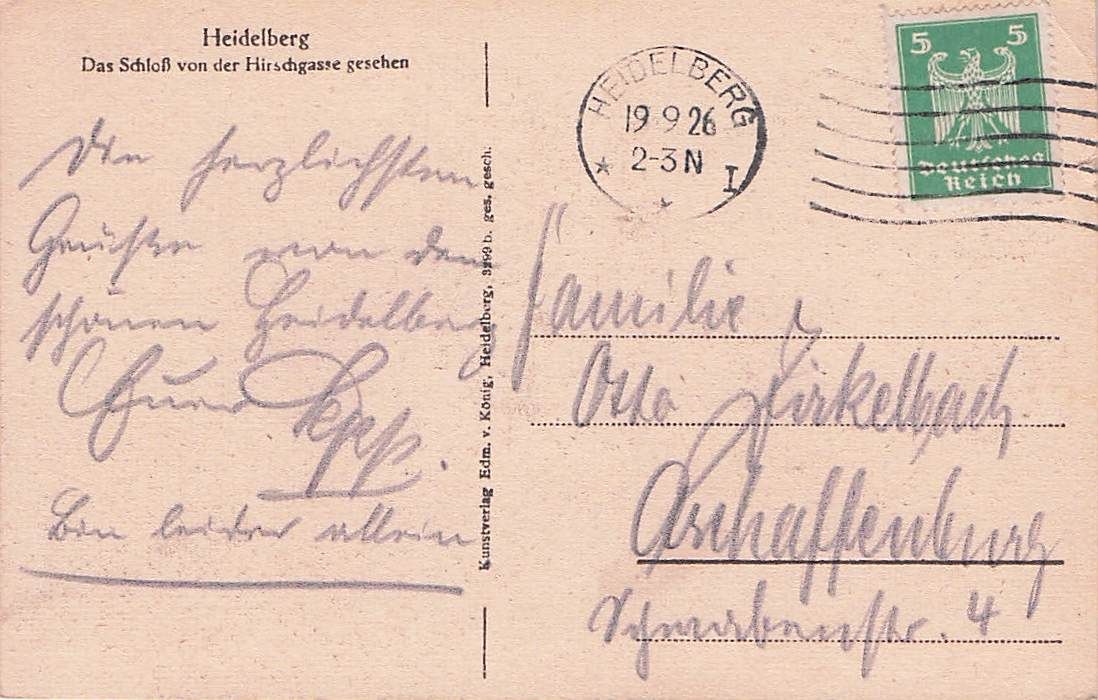 Heidelberg
Das Schloß von der Hirschgasse gesehen
Die herzlichsten
Grüße von dem
schönen Heidelberg
Euer
Bin leider allein
Kunstverlag Edm. v. König, Heidelberg, 3299 b. ges. gesch.
HEIDELBERG
19 9 26
2-3 N
I
5 5
Deutsches
Reich
Familie
Otto Zirkelbach
Aschaffenburg
Schwabenstr. 4